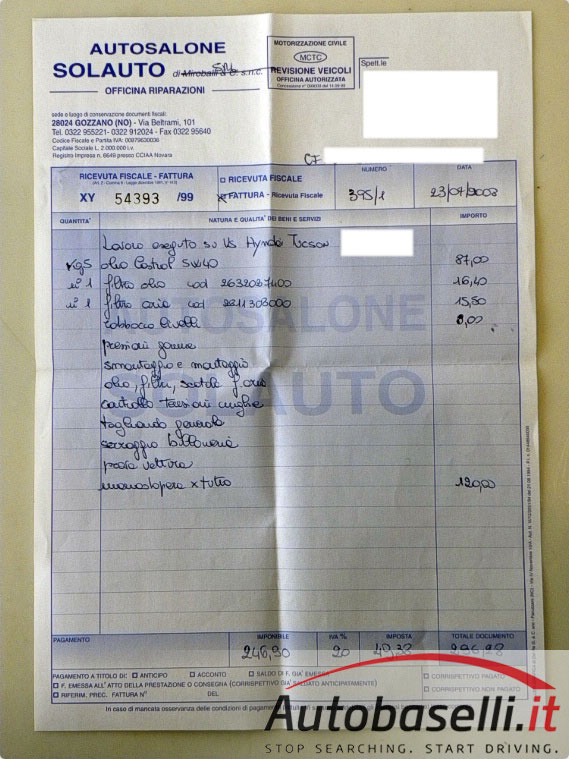 AUTOSALONE
SOLAUTO di Miroballi & C. s.n.c.
OFFICINA RIPARAZIONI
MOTORIZZAZIONE CIVILE
MCTC
REVISIONE VEICOLI
OFFICINA AUTORIZZATA
Spett.le
sede e luogo di conservazione documenti fiscali:
28024 GOZZANO (NO) - Via Beltrami, 101
Tel. 0322 955221 - 0322 912024 - Fax 0322 95640
Codice Fiscale e Partita IVA: 00979630036
Capitale Sociale L. 2.000.000 i.v.
Registro Imprese n. 8649 presso CCIAA Novara
CF
RICEVUTA FISCALE - FATTURA
XY 54393 /99
RICEVUTA FISCALE
FATTURA - Ricevuta Fiscale
NUMERO
395/1
DATA
23/07/2008
QUANTITA' NATURA E QUALITA' DEI BENI E SERVIZI IMPORTO
Lavoro eseguito su Vs Hyundai Tucson
Kg5 olio Castrol 5W40 87,00
n° 1 filtro olio cod 2632027400 16,40
n° 1 filtro aria cod 2811308000 15,50
rabbocco livelli 8,00
pressioni gomme
smontaggio e montaggio
olio, filtri, scatola f. aria
controllo tensioni cinghie
tagliando generale
serraggio bulloneria
prova vettura
manodopera x tutto 120,00
PAGAMENTO IMPONIBILE IVA % IMPOSTA TOTALE DOCUMENTO
246,90 20 49,38 296,28
PAGAMENTO A TITOLO DI: ANTICIPO ACCONTO SALDO DI F. GIA' EMESSA CORRISPETTIVO PAGATO
F. EMESSA ALL'ATTO DELLA PRESTAZIONE O CONSEGNA (CORRISPETTIVO GIA' SALDATO ANTICIPATAMENTE) CORRISPETTIVO NON PAGATO
RIFERIM. PREC. FATTURA N° DEL
In caso di mancata osservazione delle condizioni di pagamento
Autobaselli.it
STOP SEARCHING. START DRIVING.